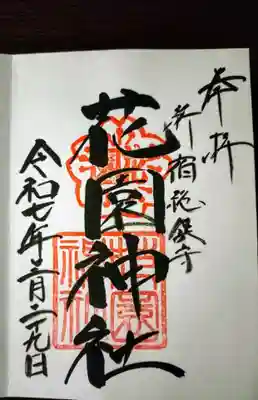 奉拝
新宿総鎮守
花園神社
令和七年六月二十九日